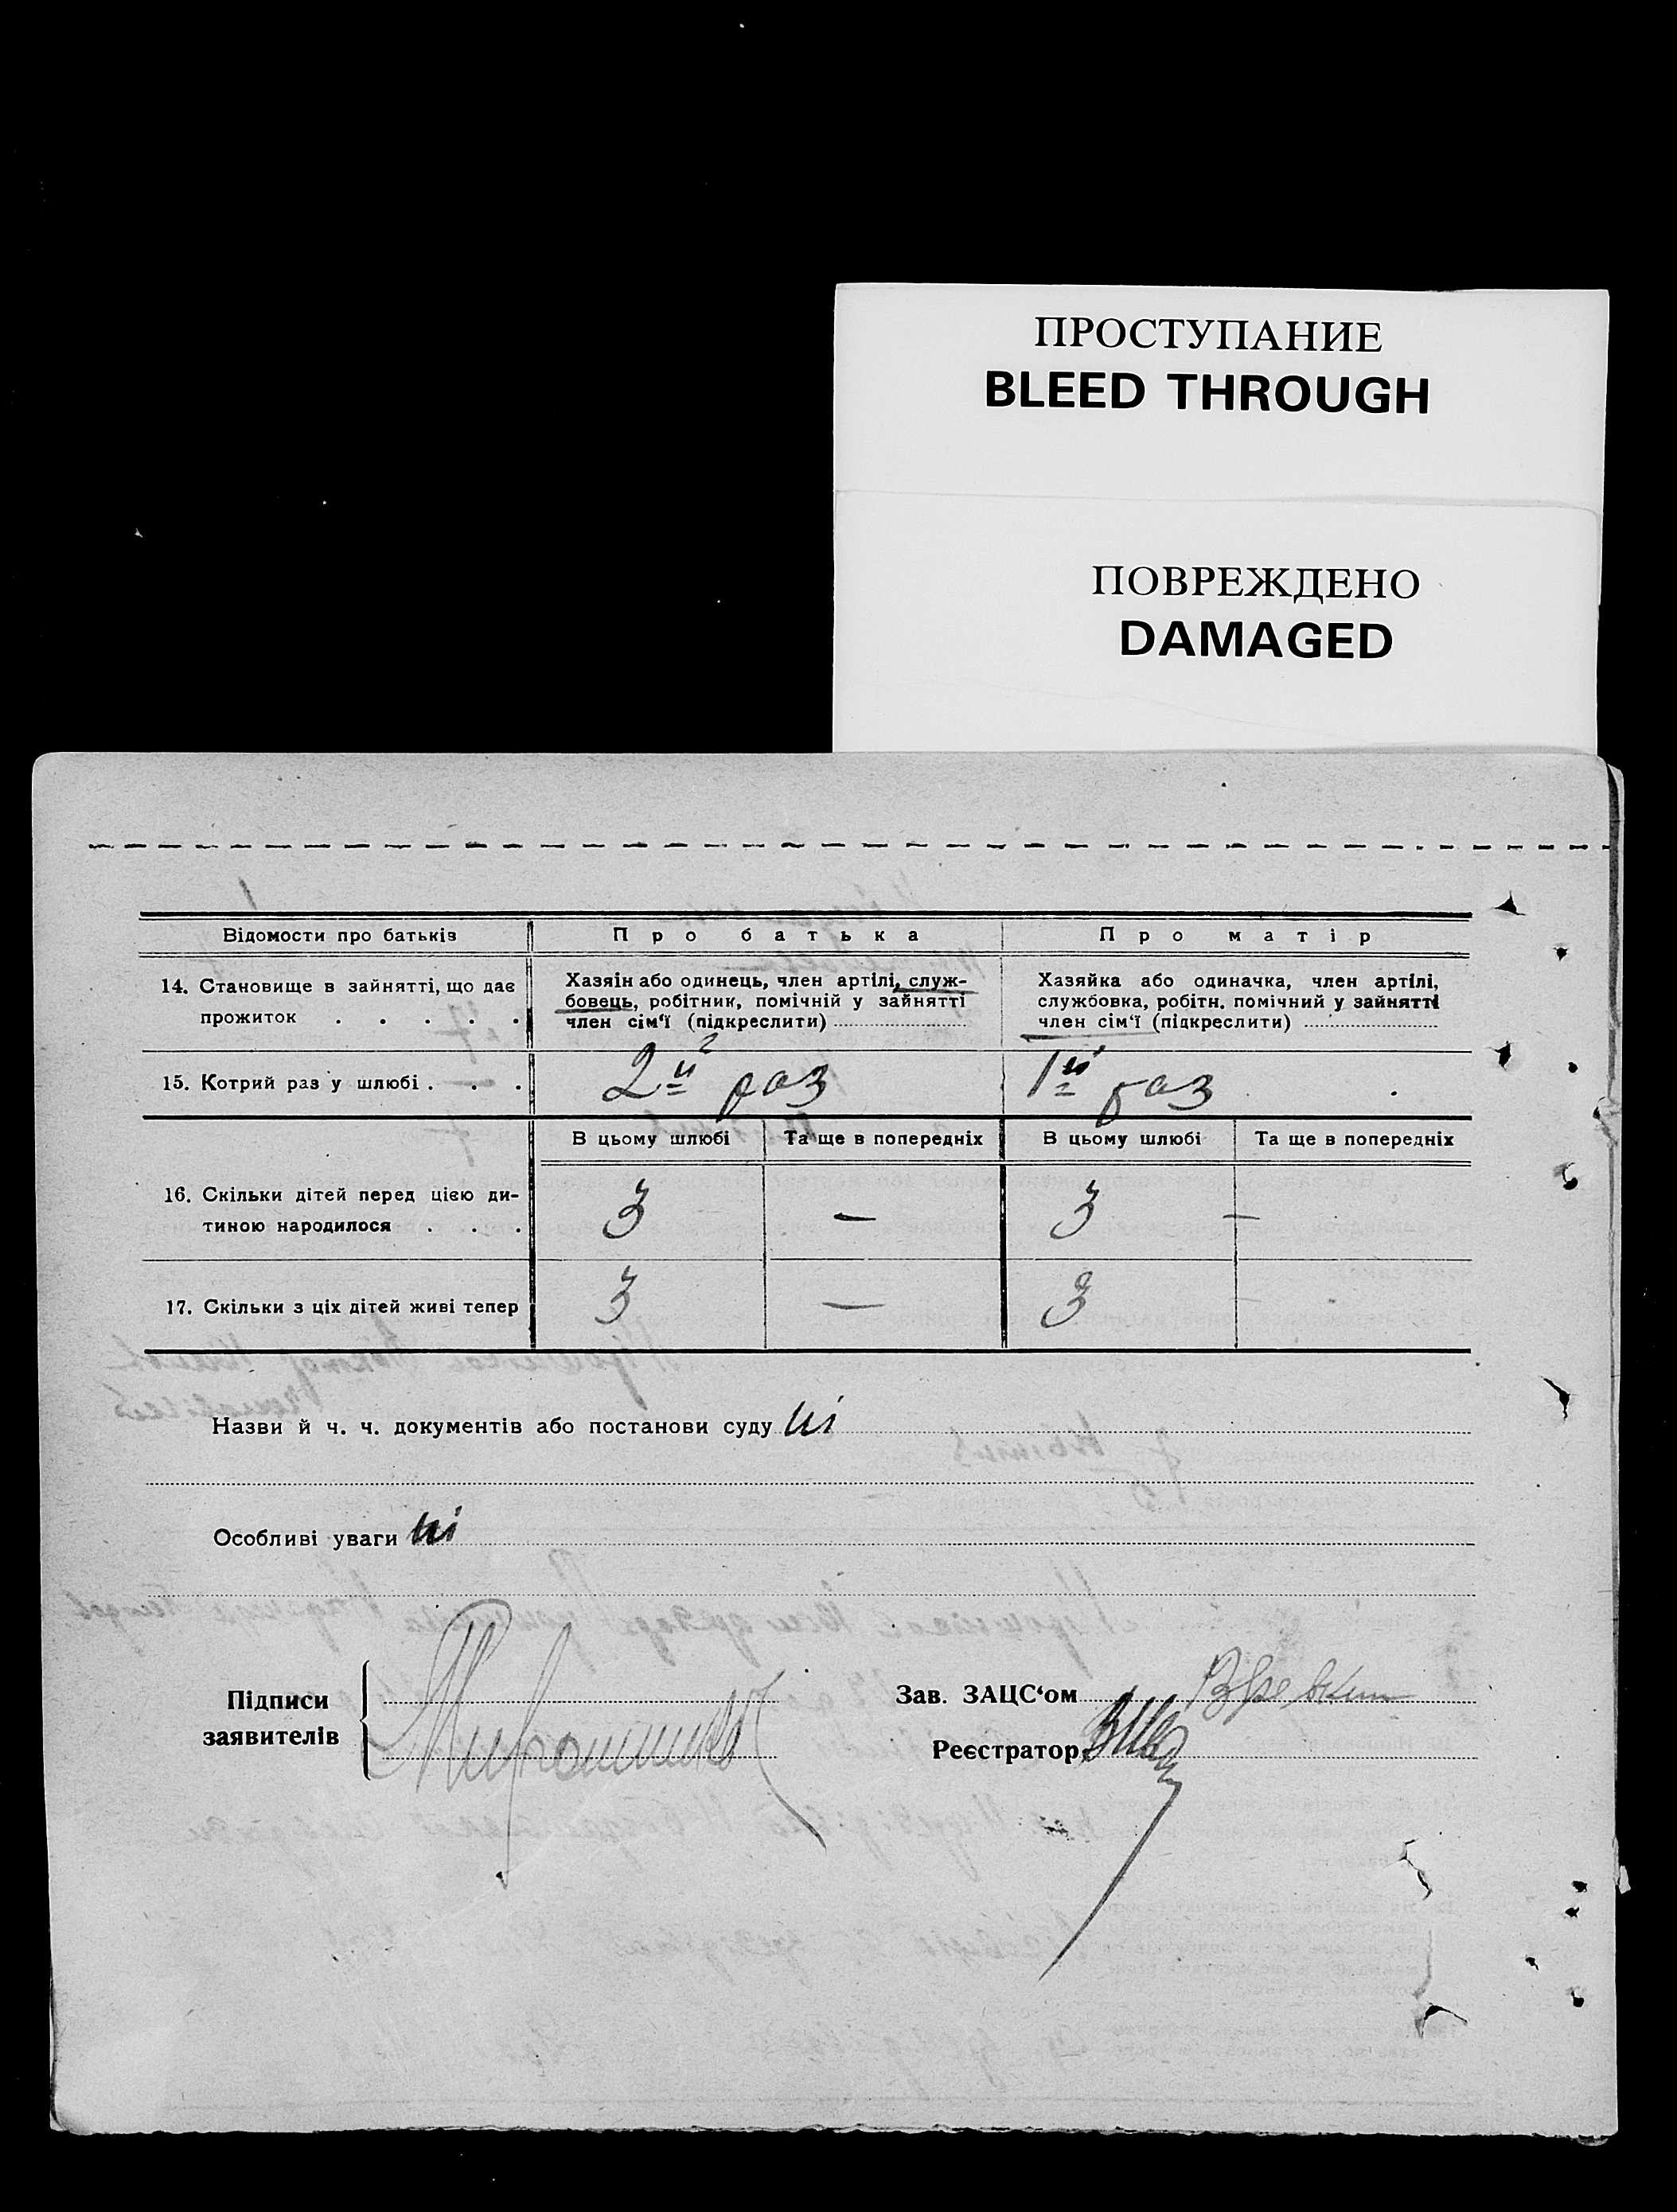 ПРОСТУПАНИЕ
BLEED THROUGH
ПОВРЕЖДЕНО
DAMAGED
Відомости про батьків
Про батька
Про матір
14. Становище в зайнятті, що дає
прожиток . . . . .
Хазяін або одинець, член артілі, служ-
бовець, робітник, помічній у зайнятті
член сім‘ї (підкреслити)
Хазяйка або одиначка, член артілі,
службовка, робітн. помічний у зайнятті
член сім‘ї (підкреслити)
15. Котрий раз у шлюбі . . .
2й раз
1й раз
В цьому шлюбі
Та ще в попередніх
В цьому шлюбі
Та ще в попередніх
16. Скільки дітей перед цією ди-
тиною народилося . . .
3 — 3 —
17. Скільки з ціх дітей живі тепер
3 — 3
Назви й ч. ч. документів або постанови суду ні
Особливі уваги ні
Підписи
заявителів
Зав. ЗАЦС‘ом
Реєстратор